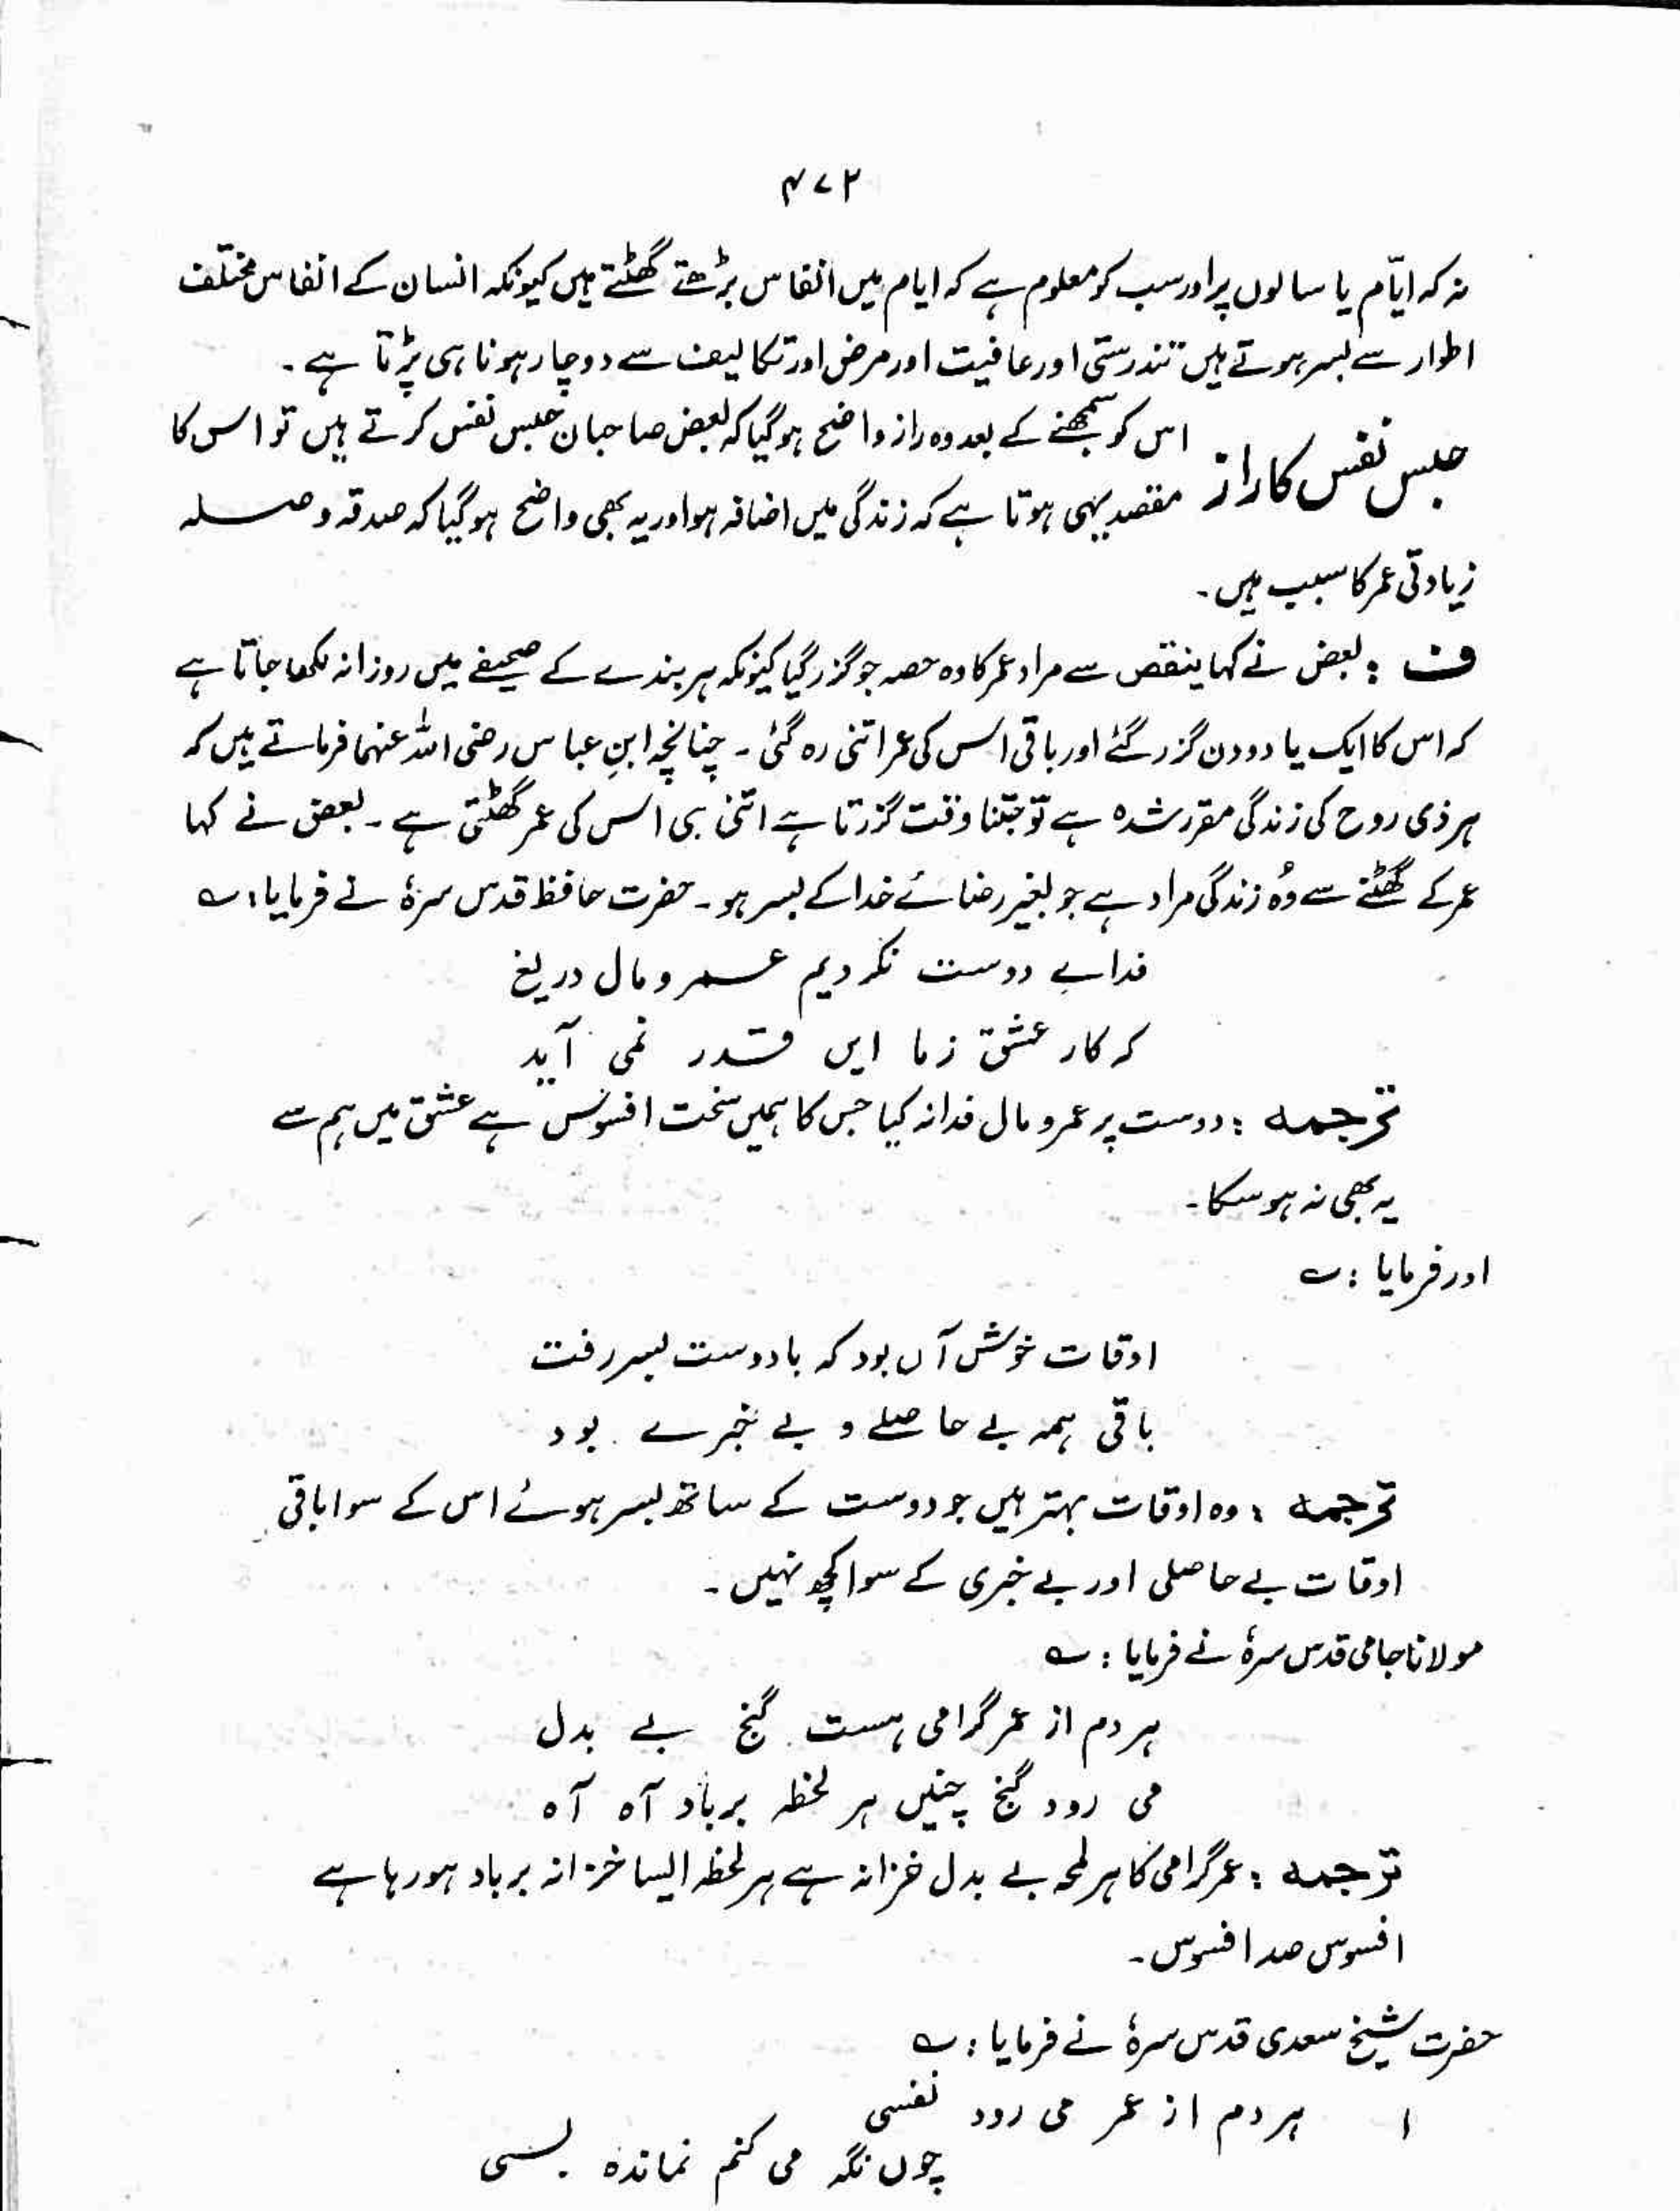 ۴۷۲
نہ کہ ایّام یا سالوں پر اور سب کو معلوم ہے کہ ایام میں انفاس بڑھتے گھٹتے ہیں کیونکہ انسان کے انفاس مختلف
اطوار سے بسر ہوتے ہیں تندرستی اور عافیت اور مرض اور تکالیف سے دوچار ہونا ہی پڑتا ہے ۔
حبس نفس کا راز اس کو سمجھنے کے بعد وہ راز واضح ہوگیا کہ بعض صاحبان حبس نفس کرتے ہیں تو اس کا
مقصد یہی ہوتا ہے کہ زندگی میں اضافہ ہو اور یہ بھی واضح ہوگیا کہ صدقہ و صلہ
زیادتی عمر کا سبب ہیں ۔
ف : بعض نے کہا ینقص سے مراد عمر کا وہ حصہ جو گزر گیا کیونکہ ہر بندے کے صحیفے میں روزانہ لکھا جاتا ہے
کہ اس کا ایک یا دو دن گزر گئے اور باقی اس کی عمر اتنی رہ گئی ۔ چنانچہ ابنِ عباس رضی اللہ عنہما فرماتے ہیں کہ
ہر ذی روح کی زندگی مقرر شدہ ہے تو جتنا وقت گزرتا ہے اتنی ہی اس کی عمر گھٹتی ہے ۔ بعض نے کہا
عمر کے گھٹنے سے وُہ زندگی مراد ہے جو بغیر رضائے خدا کے بسر ہو ۔ حضرت حافظ قدس سرہٗ نے فرمایا : ؎
فداے دوست نکردیم عمر و مال دریغ
کہ کار عشق زما ایں قدر نمی آید
ترجمہ : دوست پر عمر و مال فدا نہ کیا جس کا ہمیں سخت افسوس ہے عشق میں ہم سے
یہ بھی نہ ہوسکا ۔
اور فرمایا : ؎
اوقات خوش آں بود کہ با دوست بسر رفت
باقی ہمہ بے حاصلے و بے خبرے بود
ترجمہ : وہ اوقات بہتر ہیں جو دوست کے ساتھ بسر ہوئے اس کے سوا باقی
اوقات بے حاصلی اور بے خبری کے سوا کچھ نہیں ۔
مولانا جامی قدس سرہٗ نے فرمایا : ؎
ہر دم از عمر گرامی ہست گنج بے بدل
می رود گنج چنیں ہر لحظہ برباد آہ آہ
ترجمہ : عمر گرامی کا ہر لمحہ بے بدل خزانہ ہے ہر لحظہ ایسا خزانہ برباد ہو رہا ہے
افسوس صد افسوس ۔
حضرت شیخ سعدی قدس سرہٗ نے فرمایا : ؎
۱ ہر دم از عمر می رود نفسی
چوں نگہ می کنم نماندہ بسی